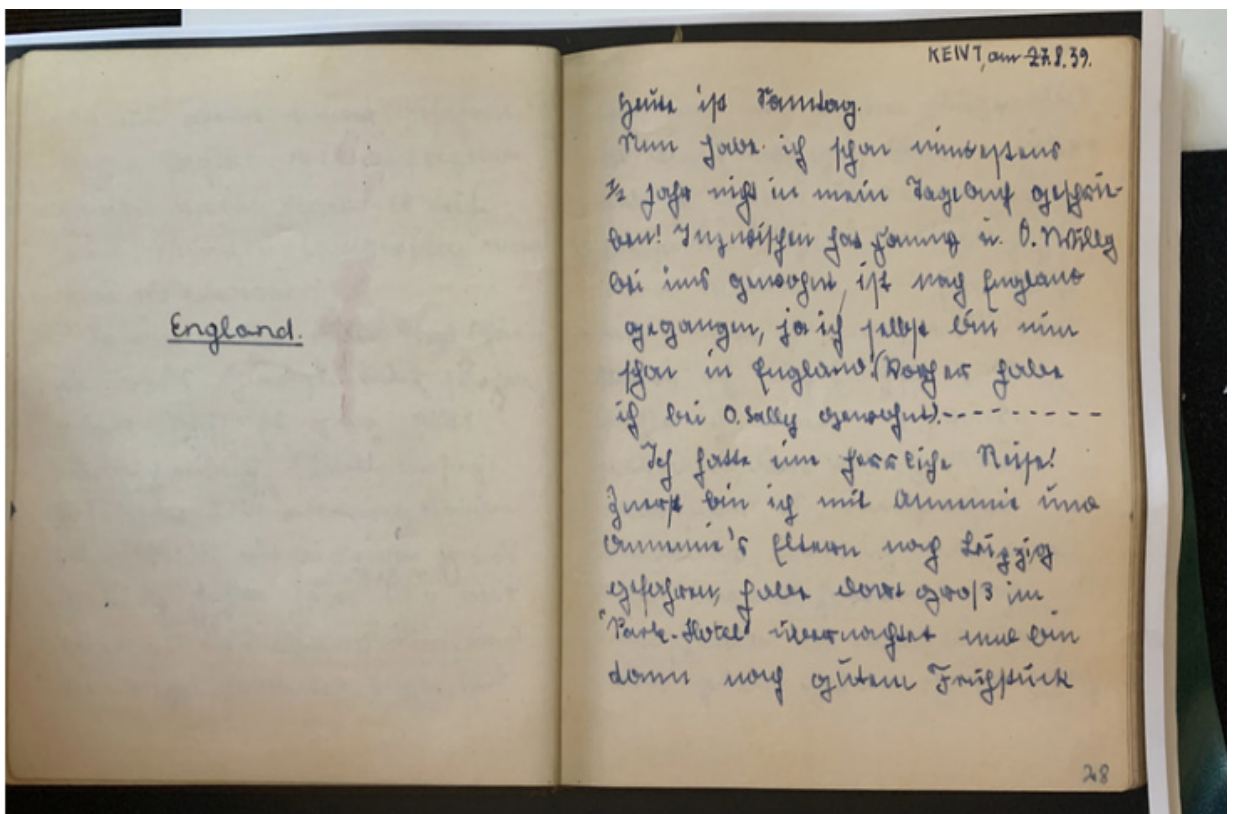 England.
KENT, am 27.8.39.
Heute ist Sonntag.
Nun habe ich schon mindestens
½ Jahr nicht in mein Tagebuch geschrie-
ben! Inzwischen hat Hanna u. O. Willy
bei uns gewohnt, ist nach England
gegangen, ja ich selbst bin nun
schon in England! (Vorher habe
ich bei O. Sally gewohnt).---------
Ich hatte eine herrliche Reise!
Zuerst bin ich mit Annemie und
Annemie's Eltern nach Leipzig
gefahren, habe dort groß im
"Park-Hotel" übernachtet und bin
dann nach gutem Frühstück
28